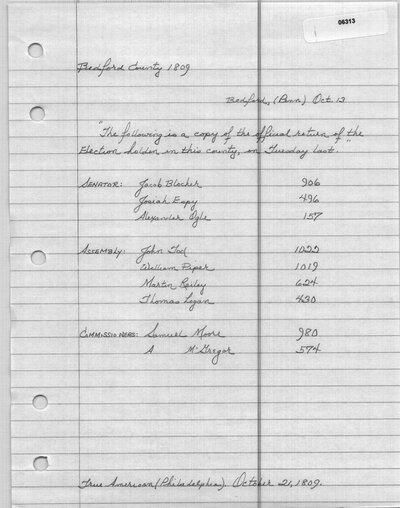 06313
Bedford County 1809
Bedford, (Penn) Oct. 13
"The following is a copy of the official return of the
Election holden in this county, on Tuesday last."
Senator: Jacob Blocher 906
Josiah Espy 496
Alexander Ogle 157
Assembly: John Tod 1022
William Piper 1019
Martin Reiley 624
Thomas Logan 430
Commissioners: Samuel Moore 980
A McGregor 574
True American (Philadelphia). October 21, 1809.